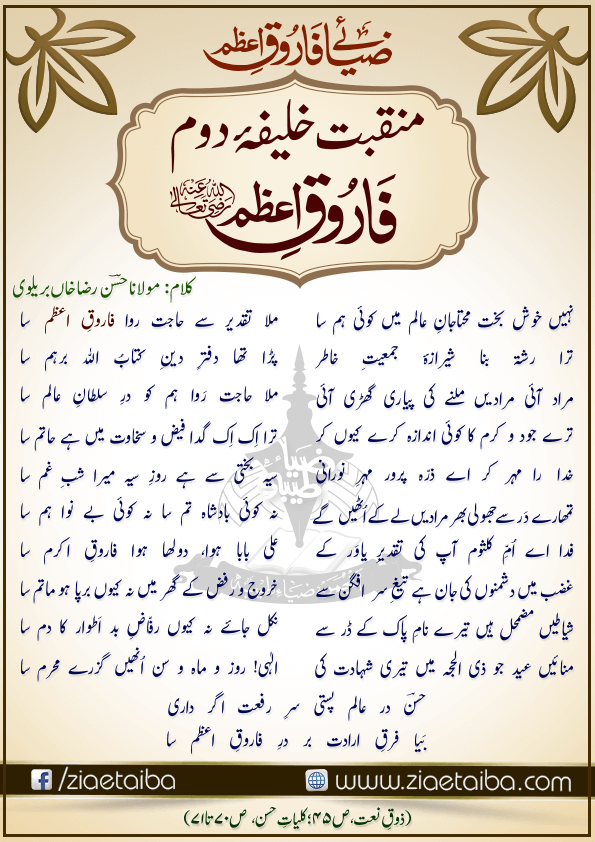 ضیائے فاروقِ اعظم
منقبت خلیفۂ دوم
فَارُوقِ اعظم رضی اللہ تعالیٰ عنہ
کلام: مولانا حسن رضا خاں بریلوی
نہیں خوش بخت محتاجانِ عالم میں کوئی ہم سا ملا تقدیر سے حاجت روا فاروقِ اعظم سا
ترا رشتہ بنا شیرازۂ جمعیتِ خاطر پڑا تھا دفترِ دینِ کتابُ اللہ برہم سا
مراد آئی مرادیں ملنے کی پیاری گھڑی آئی ملا حاجت رَوا ہم کو درِ سلطانِ عالم سا
ترے جود و کرم کا کوئی اندازہ کرے کیوں کر ترا اِک اِک گدا فیض و سخاوت میں ہے حاتم سا
خدا را مہر کر اے ذرّہ پرور مہرِ نورانی سیہ بختی سے ہے روزِ سیہ میرا شبِ غم سا
تمھارے دَر سے جھولی بھر مرادیں لے کے اُٹھیں گے نہ کوئی بادشاہ تم سا نہ کوئی بے نوا ہم سا
فدا اے اُمّ کلثوم آپ کی تقدیرِ یاوَر کے علی بابا ہوا، دولھا ہوا فاروقِ اکرم سا
غضب میں دشمنوں کی جان ہے تیغِ سر افگن سے خروج و رفض کے گھر میں نہ کیوں برپا ہو ماتم سا
شیاطیں مضمحل ہیں تیرے نامِ پاک کے ڈر سے نکل جائے نہ کیوں رفّاضِ بد اَطوار کا دم سا
منائیں عید جو ذی الحجہ میں تیری شہادت کی الٰہی! روز و ماہ و سن اُنھیں گزرے محرم سا
حسنؔ در عالمِ پستی سرِ رفعت اگر داری
بَیا فرقِ ارادت بر درِ فاروقِ اعظم سا
/ziaetaiba
www.ziaetaiba.com
(ذوقِ نعت، ص۴۵؛ کلیاتِ حسن، ص۷۰ تا ۷۱)